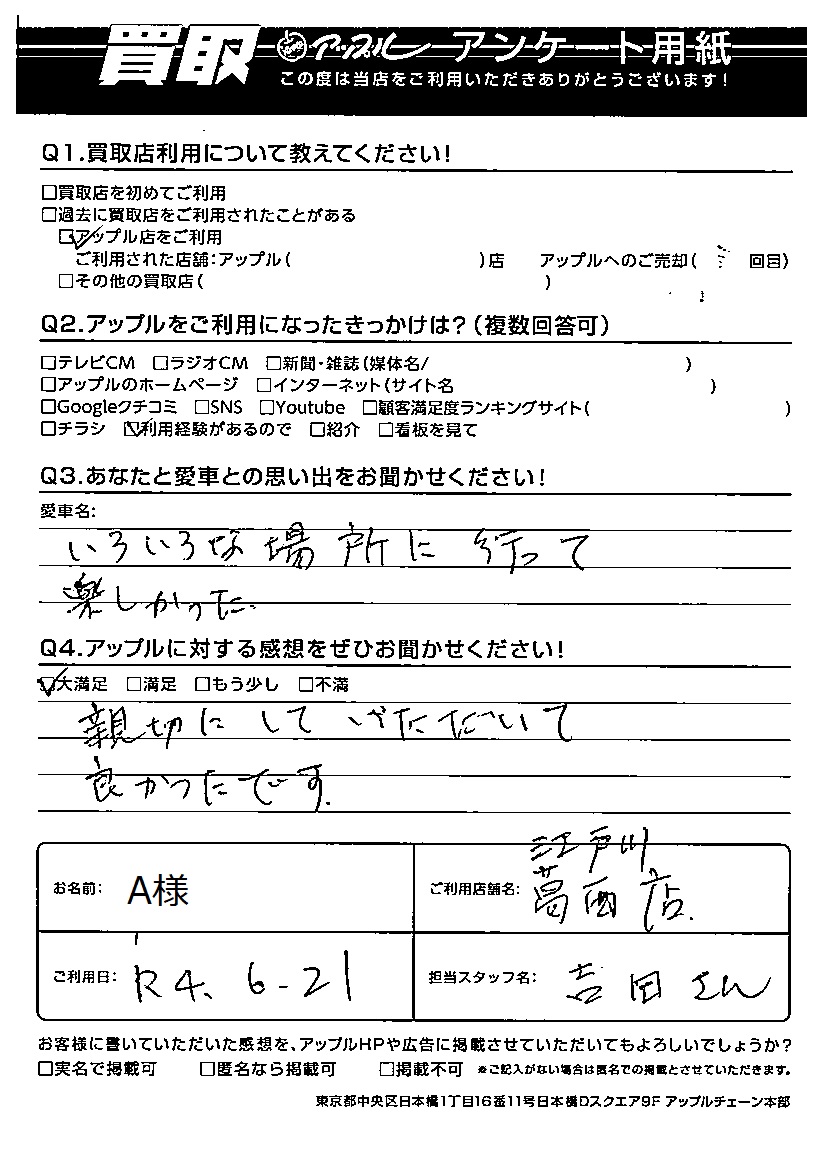 買取 アップル アンケート用紙
この度は当店をご利用いただきありがとうございます!
Q1.買取店利用について教えてください!
□買取店を初めてご利用
□過去に買取店をご利用されたことがある
☑アップル店をご利用
ご利用された店舗:アップル( )店 アップルへのご売却( 回目)
□その他の買取店( )
Q2.アップルをご利用になったきっかけは?(複数回答可)
□テレビCM □ラジオCM □新聞・雑誌(媒体名/ )
□アップルのホームページ □インターネット(サイト名 )
□Googleクチコミ □SNS □Youtube □顧客満足度ランキングサイト( )
□チラシ ☑利用経験があるので □紹介 □看板を見て
Q3.あなたと愛車との思い出をお聞かせください!
愛車名:
いろいろな場所に行って
楽しかった.
Q4.アップルに対する感想をぜひお聞かせください!
☑大満足 □満足 □もう少し □不満
親切にしていただいて
良かったです.
お名前: A様
ご利用店舗名: 江戸川
葛西店.
ご利用日: R4.6-21
担当スタッフ名: 吉田さん
お客様に書いていただいた感想を、アップルHPや広告に掲載させていただいてもよろしいでしょうか?
□実名で掲載可 □匿名なら掲載可 □掲載不可 ※ご記入がない場合は匿名での掲載とさせていただきます。
東京都中央区日本橋1丁目16番11号日本橋Dスクエア9F アップルチェーン本部